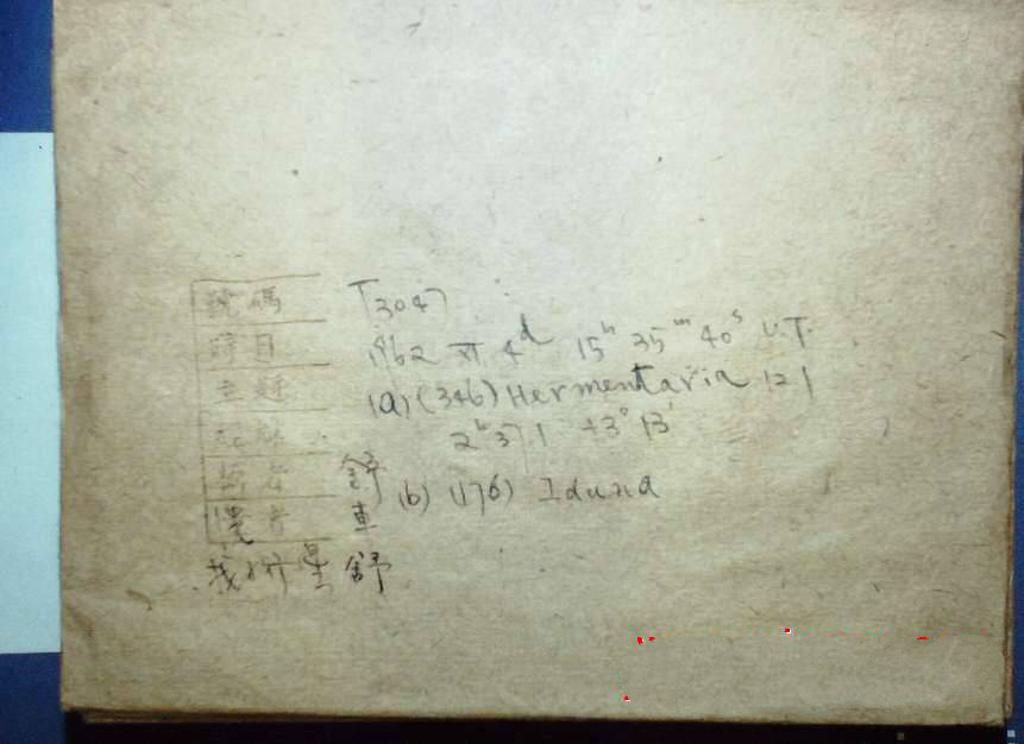 號碼 T3047
時日 1962 XI 4d 15h 35m 40s U.T.
主題 (a) (346) Hermentaria 12.1
2h 37.1 +3° 13'
舒 (b) (176) Iduna
車
找小行星 舒